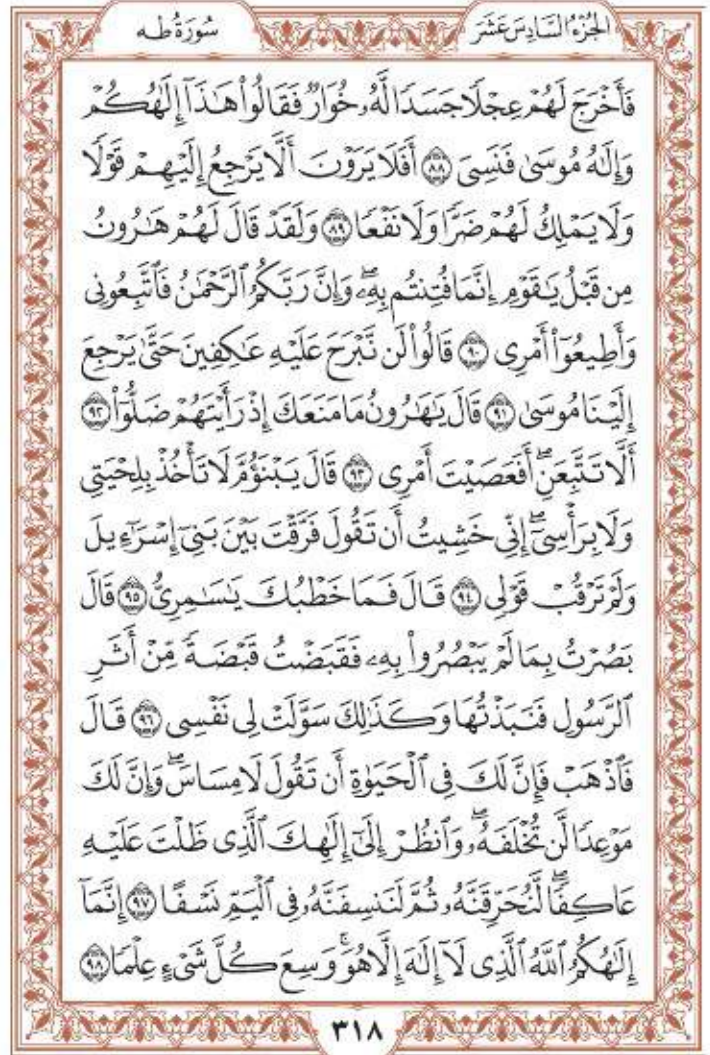 الجُزْءُ السَّادِسَ عَشَرَ سُورَةُ طه
فَأَخْرَجَ لَهُمْ عِجْلًا جَسَدًا لَّهُۥ خُوَارٌ فَقَالُوا۟ هَٰذَآ إِلَٰهُكُمْ
وَإِلَٰهُ مُوسَىٰ فَنَسِىَ ٨٨ أَفَلَا يَرَوْنَ أَلَّا يَرْجِعُ إِلَيْهِمْ قَوْلًا
وَلَا يَمْلِكُ لَهُمْ ضَرًّا وَلَا نَفْعًا ٨٩ وَلَقَدْ قَالَ لَهُمْ هَٰرُونُ
مِن قَبْلُ يَٰقَوْمِ إِنَّمَا فُتِنتُم بِهِۦۖ وَإِنَّ رَبَّكُمُ ٱلرَّحْمَٰنُ فَٱتَّبِعُونِى
وَأَطِيعُوٓا۟ أَمْرِى ٩٠ قَالُوا۟ لَن نَّبْرَحَ عَلَيْهِ عَٰكِفِينَ حَتَّىٰ يَرْجِعَ
إِلَيْنَا مُوسَىٰ ٩١ قَالَ يَٰهَٰرُونُ مَا مَنَعَكَ إِذْ رَأَيْتَهُمْ ضَلُّوٓا۟ ٩٢
أَلَّا تَتَّبِعَنِۖ أَفَعَصَيْتَ أَمْرِى ٩٣ قَالَ يَبْنَؤُمَّ لَا تَأْخُذْ بِلِحْيَتِى
وَلَا بِرَأْسِىٓۖ إِنِّى خَشِيتُ أَن تَقُولَ فَرَّقْتَ بَيْنَ بَنِىٓ إِسْرَٰٓءِيلَ
وَلَمْ تَرْقُبْ قَوْلِى ٩٤ قَالَ فَمَا خَطْبُكَ يَٰسَٰمِرِىُّ ٩٥ قَالَ
بَصُرْتُ بِمَا لَمْ يَبْصُرُوا۟ بِهِۦ فَقَبَضْتُ قَبْضَةً مِّنْ أَثَرِ
ٱلرَّسُولِ فَنَبَذْتُهَا وَكَذَٰلِكَ سَوَّلَتْ لِى نَفْسِى ٩٦ قَالَ
فَٱذْهَبْ فَإِنَّ لَكَ فِى ٱلْحَيَوٰةِ أَن تَقُولَ لَا مِسَاسَۖ وَإِنَّ لَكَ
مَوْعِدًا لَّن تُخْلَفَهُۥۖ وَٱنظُرْ إِلَىٰٓ إِلَٰهِكَ ٱلَّذِى ظَلْتَ عَلَيْهِ
عَاكِفًاۖ لَّنُحَرِّقَنَّهُۥ ثُمَّ لَنَنسِفَنَّهُۥ فِى ٱلْيَمِّ نَسْفًا ٩٧ إِنَّمَآ
إِلَٰهُكُمُ ٱللَّهُ ٱلَّذِى لَآ إِلَٰهَ إِلَّا هُوَۚ وَسِعَ كُلَّ شَىْءٍ عِلْمًا ٩٨
٣١٨